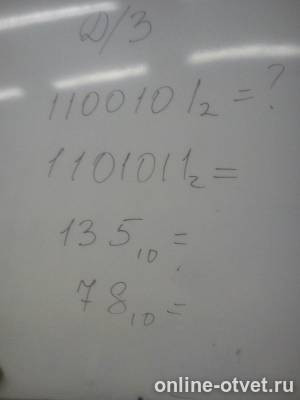 Д/З
1100101₂ = ?
1101011₂ =
135₁₀ =
78₁₀ =
online-otvet.ru